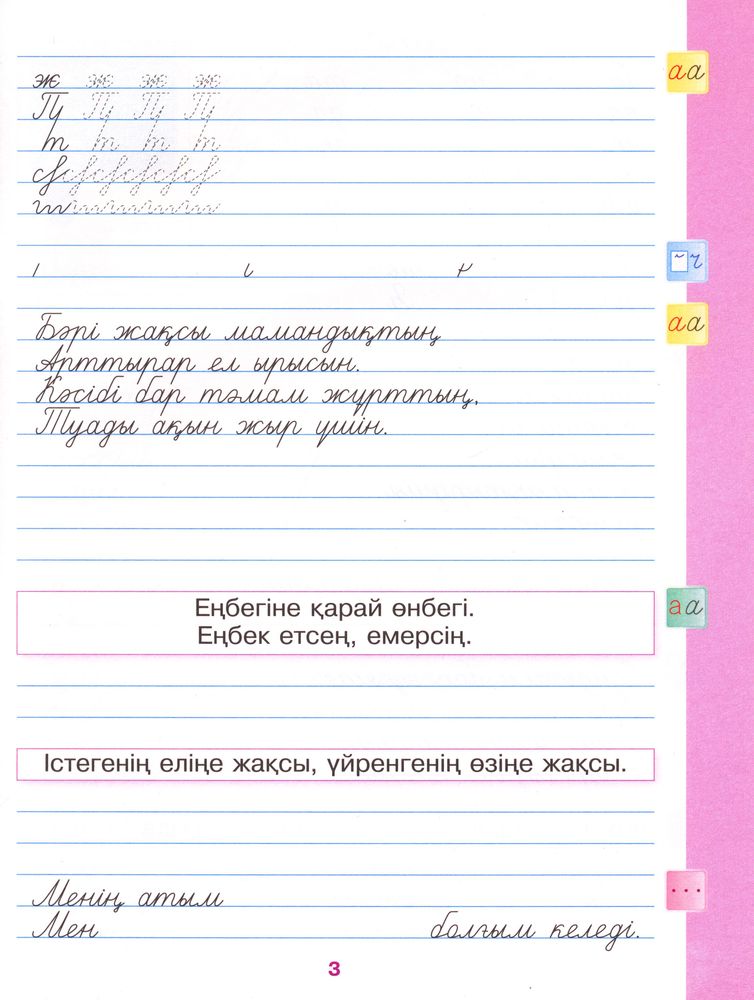 аа
ж ж ж ж
Пу Пу Пу Пу
т т т т
Бәрі жақсы мамандықтың
Арттырар ел ырысын.
Кәсібі бар тәмам жұрттың,
Туады ақын жыр үшін.
аа
Еңбегіне қарай өнбегі.
Еңбек етсең, емерсің.
аа
Істегенің еліңе жақсы, үйренгенің өзіңе жақсы.
Менің атым
...
Мен болғым келеді.
3